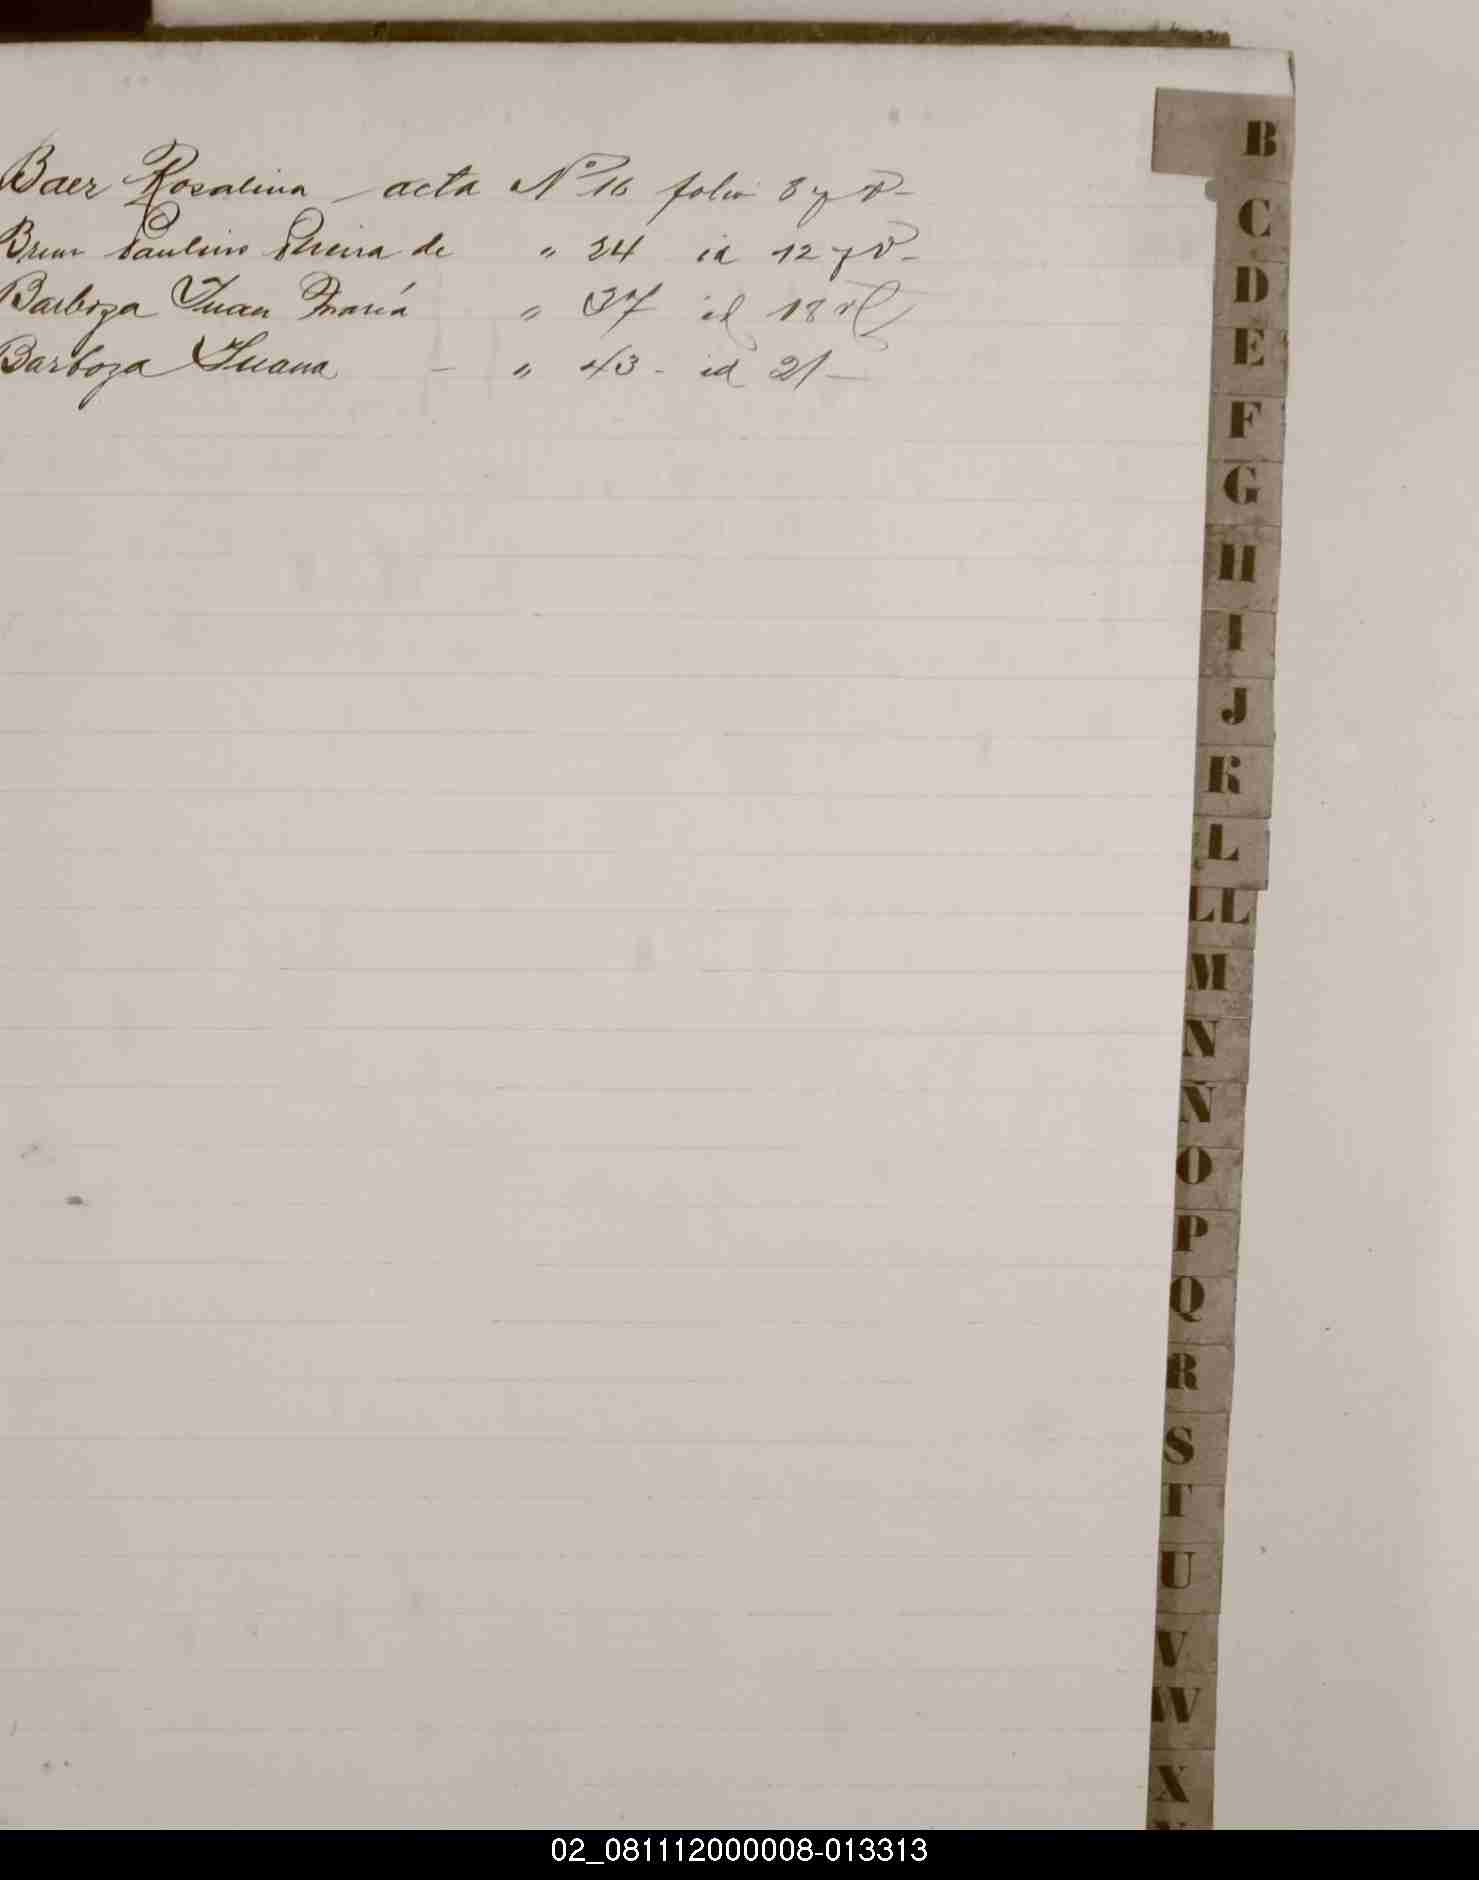 Baer Rosalina acta Nº 16 folio 8 y v
Paulino de " 24 id 12 y v
Barboza Juan María " 37 id 18
Barboza Juana - " 43 - id 21
B
C
D
E
F
G
H
I
J
K
L
LL
M
N
Ñ
O
P
Q
R
S
T
U
V
W
X
02_081112000008-013313